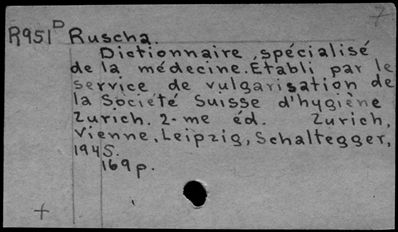 7
R951D Ruscha.
Dictionnaire spécialisé
de la médecine. Établi par le
service de vulgarisation de
la Société Suisse d'hygiène
Zurich. 2-me éd. Zurich,
Vienne, Leipzig, Schaltegger,
1945.
169p.
+